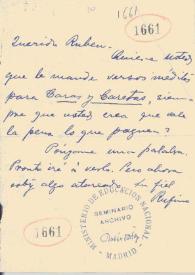 1661
1661
Querido Ruben.
Quiere usted
que le mande versos inéditos
para Caras y Caretas, siem
pre que usted crea que vale
la pena lo que paguen?
Póngame una palabra.
Pronto iré a verlo. Pero ahora
estoy algo atareado. Su fiel
Rufino
MINISTERIO DE EDUCACIÓN NACIONAL
MADRID
SEMINARIO
ARCHIVO
1661